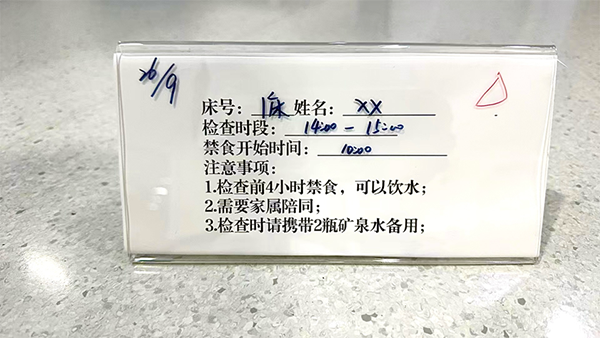 26/9
床号：1床 姓名：XX
检查时段：14:00-15:00
禁食开始时间：10:00
注意事项：
1.检查前4小时禁食，可以饮水；
2.需要家属陪同；
3.检查时请携带2瓶矿泉水备用；